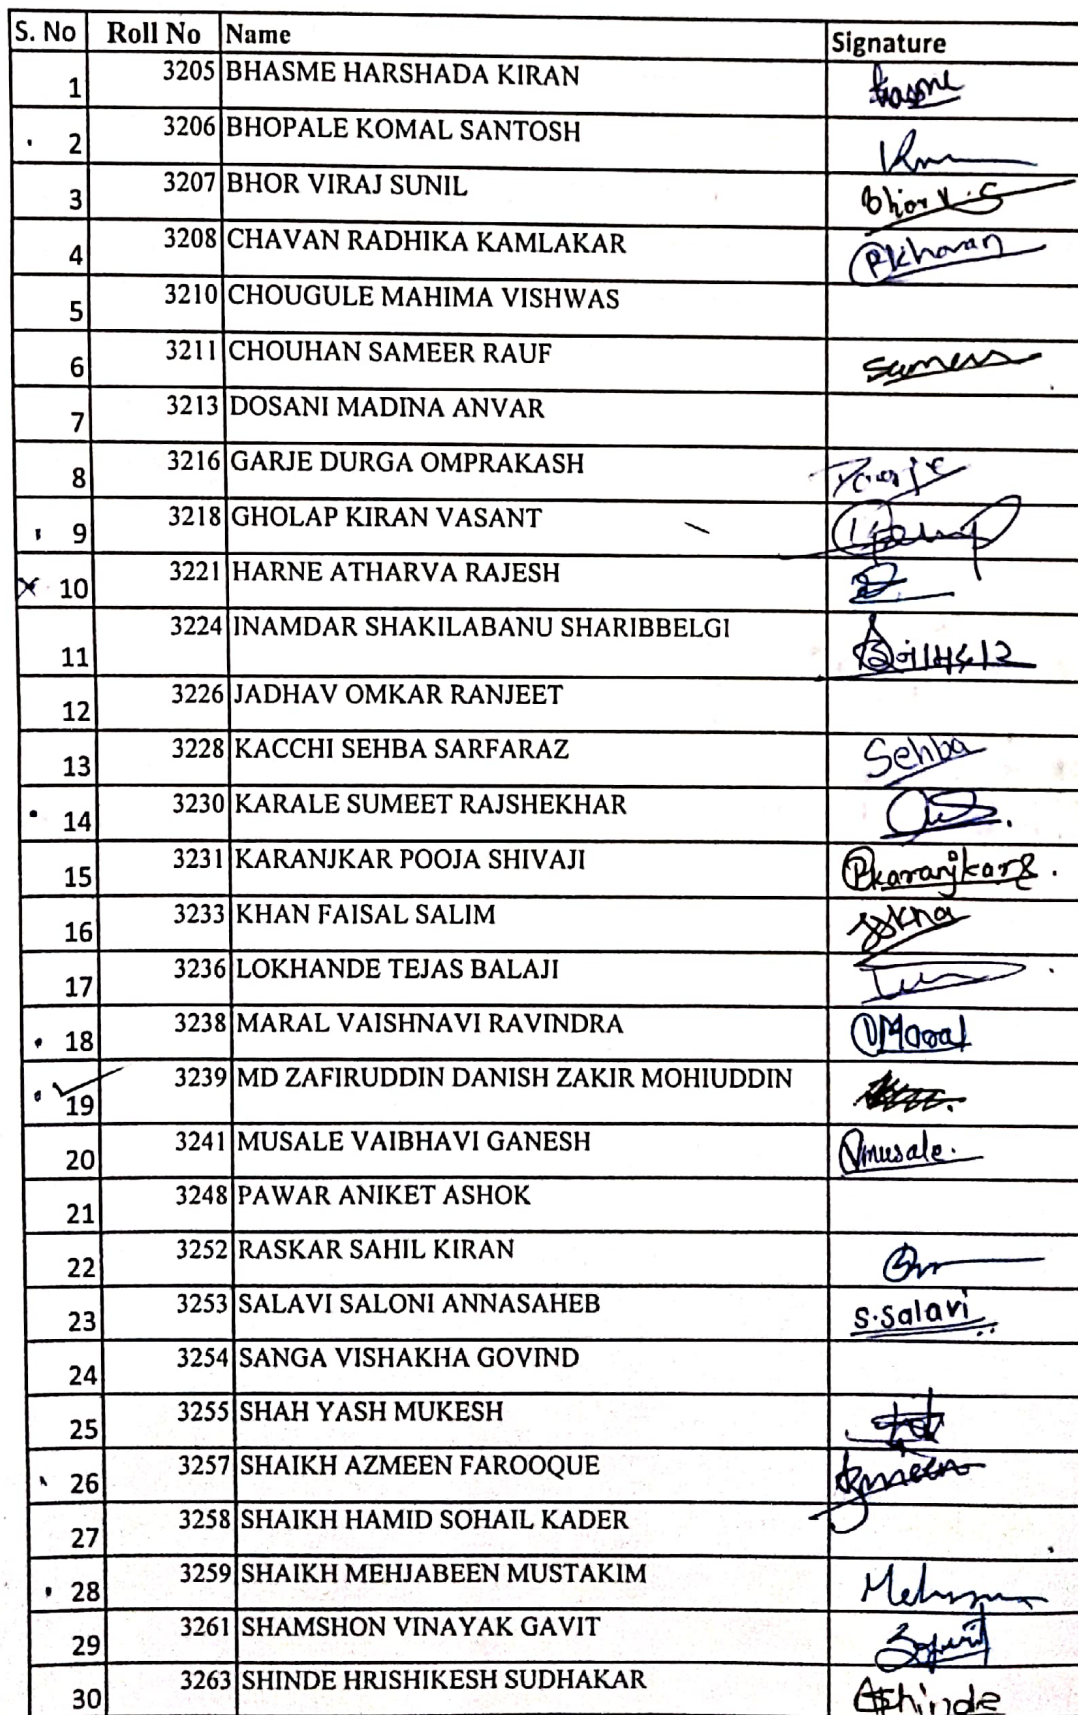 S. No Roll No Name Signature
1 3205 BHASME HARSHADA KIRAN
2 3206 BHOPALE KOMAL SANTOSH
3 3207 BHOR VIRAJ SUNIL Bhor V.S
4 3208 CHAVAN RADHIKA KAMLAKAR
5 3210 CHOUGULE MAHIMA VISHWAS
6 3211 CHOUHAN SAMEER RAUF
7 3213 DOSANI MADINA ANVAR
8 3216 GARJE DURGA OMPRAKASH
9 3218 GHOLAP KIRAN VASANT
10 3221 HARNE ATHARVA RAJESH
11 3224 INAMDAR SHAKILABANU SHARIBBELGI
12 3226 JADHAV OMKAR RANJEET
13 3228 KACCHI SEHBA SARFARAZ Sehba
14 3230 KARALE SUMEET RAJSHEKHAR
15 3231 KARANJKAR POOJA SHIVAJI
16 3233 KHAN FAISAL SALIM
17 3236 LOKHANDE TEJAS BALAJI
18 3238 MARAL VAISHNAVI RAVINDRA
19 3239 MD ZAFIRUDDIN DANISH ZAKIR MOHIUDDIN
20 3241 MUSALE VAIBHAVI GANESH Vmusale.
21 3248 PAWAR ANIKET ASHOK
22 3252 RASKAR SAHIL KIRAN
23 3253 SALAVI SALONI ANNASAHEB S.Salavi
24 3254 SANGA VISHAKHA GOVIND
25 3255 SHAH YASH MUKESH
26 3257 SHAIKH AZMEEN FAROOQUE Azmeen
27 3258 SHAIKH HAMID SOHAIL KADER
28 3259 SHAIKH MEHJABEEN MUSTAKIM
29 3261 SHAMSHON VINAYAK GAVIT
30 3263 SHINDE HRISHIKESH SUDHAKAR